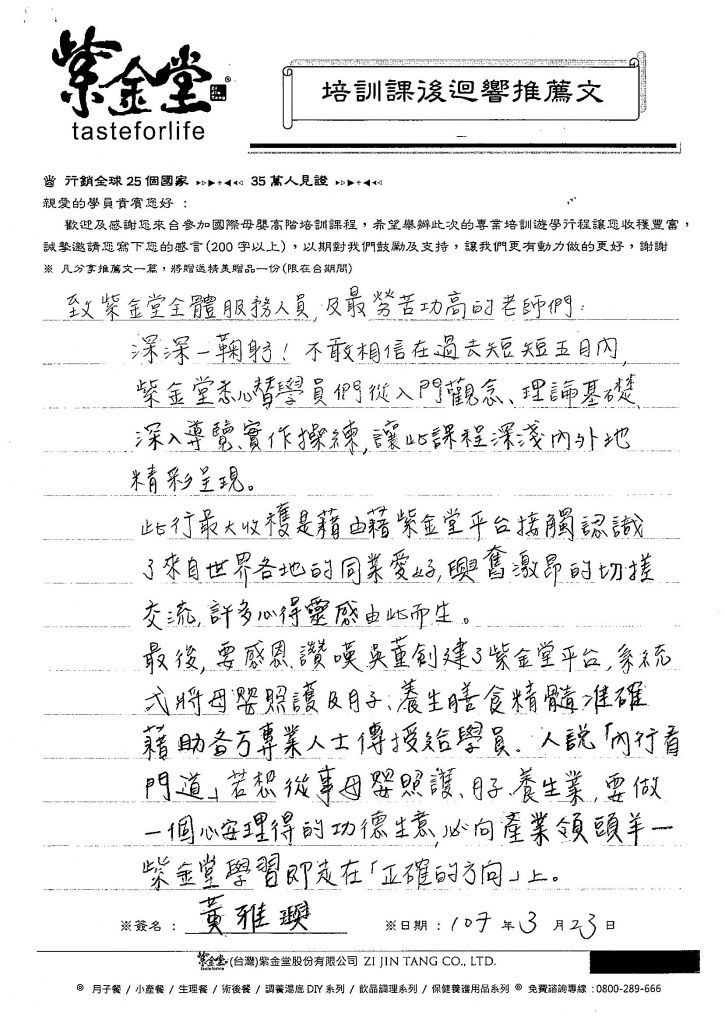 紫金堂®
tasteforlife
培訓課後迴響推薦文
行銷全球 25 個國家 ▹▹▶+◀◃◃ 35 萬人見證 ▹▹▶+◀◃◃
親愛的學員貴賓您好：
歡迎及感謝您來台參加國際母嬰高階培訓課程，希望舉辦此次的專業培訓遊學行程讓您收穫豐富，
誠摯邀請您寫下您的感言(200 字以上)，以期對我們鼓勵及支持，讓我們更有動力做的更好，謝謝
※ 凡分享推薦文一篇，將贈送精美贈品一份(限在台期間)
致紫金堂全體服務人員,及最勞苦功高的老師們:
深深一鞠躬! 不敢相信在過去短短五日內,
紫金堂悉心替學員們從入門觀念、理論基礎、
深入導覽、實作操練,讓此課程深淺內外地
精彩呈現。
此行最大收穫是藉由藉紫金堂平台接觸認識
了來自世界各地的同業愛好,興奮激昂的切搓
交流,許多心得靈感由此而生。
最後,要感恩、讚嘆吳董創建了紫金堂平台,系統
式將母嬰照護及月子、養生膳食精髓準確
藉助各方專業人士傳授給學員。人說「內行看
門道」若想從事母嬰照護、月子、養生業,要做
一個心安理得的功德生意,必向產業領頭羊—
紫金堂學習即走在「正確的方向」上。
※簽名：黃雅璵 ※日期：107 年 3 月 23 日
紫金堂 tasteforlife (台灣)紫金堂股份有限公司 ZI JIN TANG CO., LTD.
◎ 月子餐 / 小產餐 / 生理餐 / 術後餐 / 調養湯底 DIY 系列 / 飲品調理系列 / 保健養護用品系列 ◎ 免費諮詢專線：0800-289-666